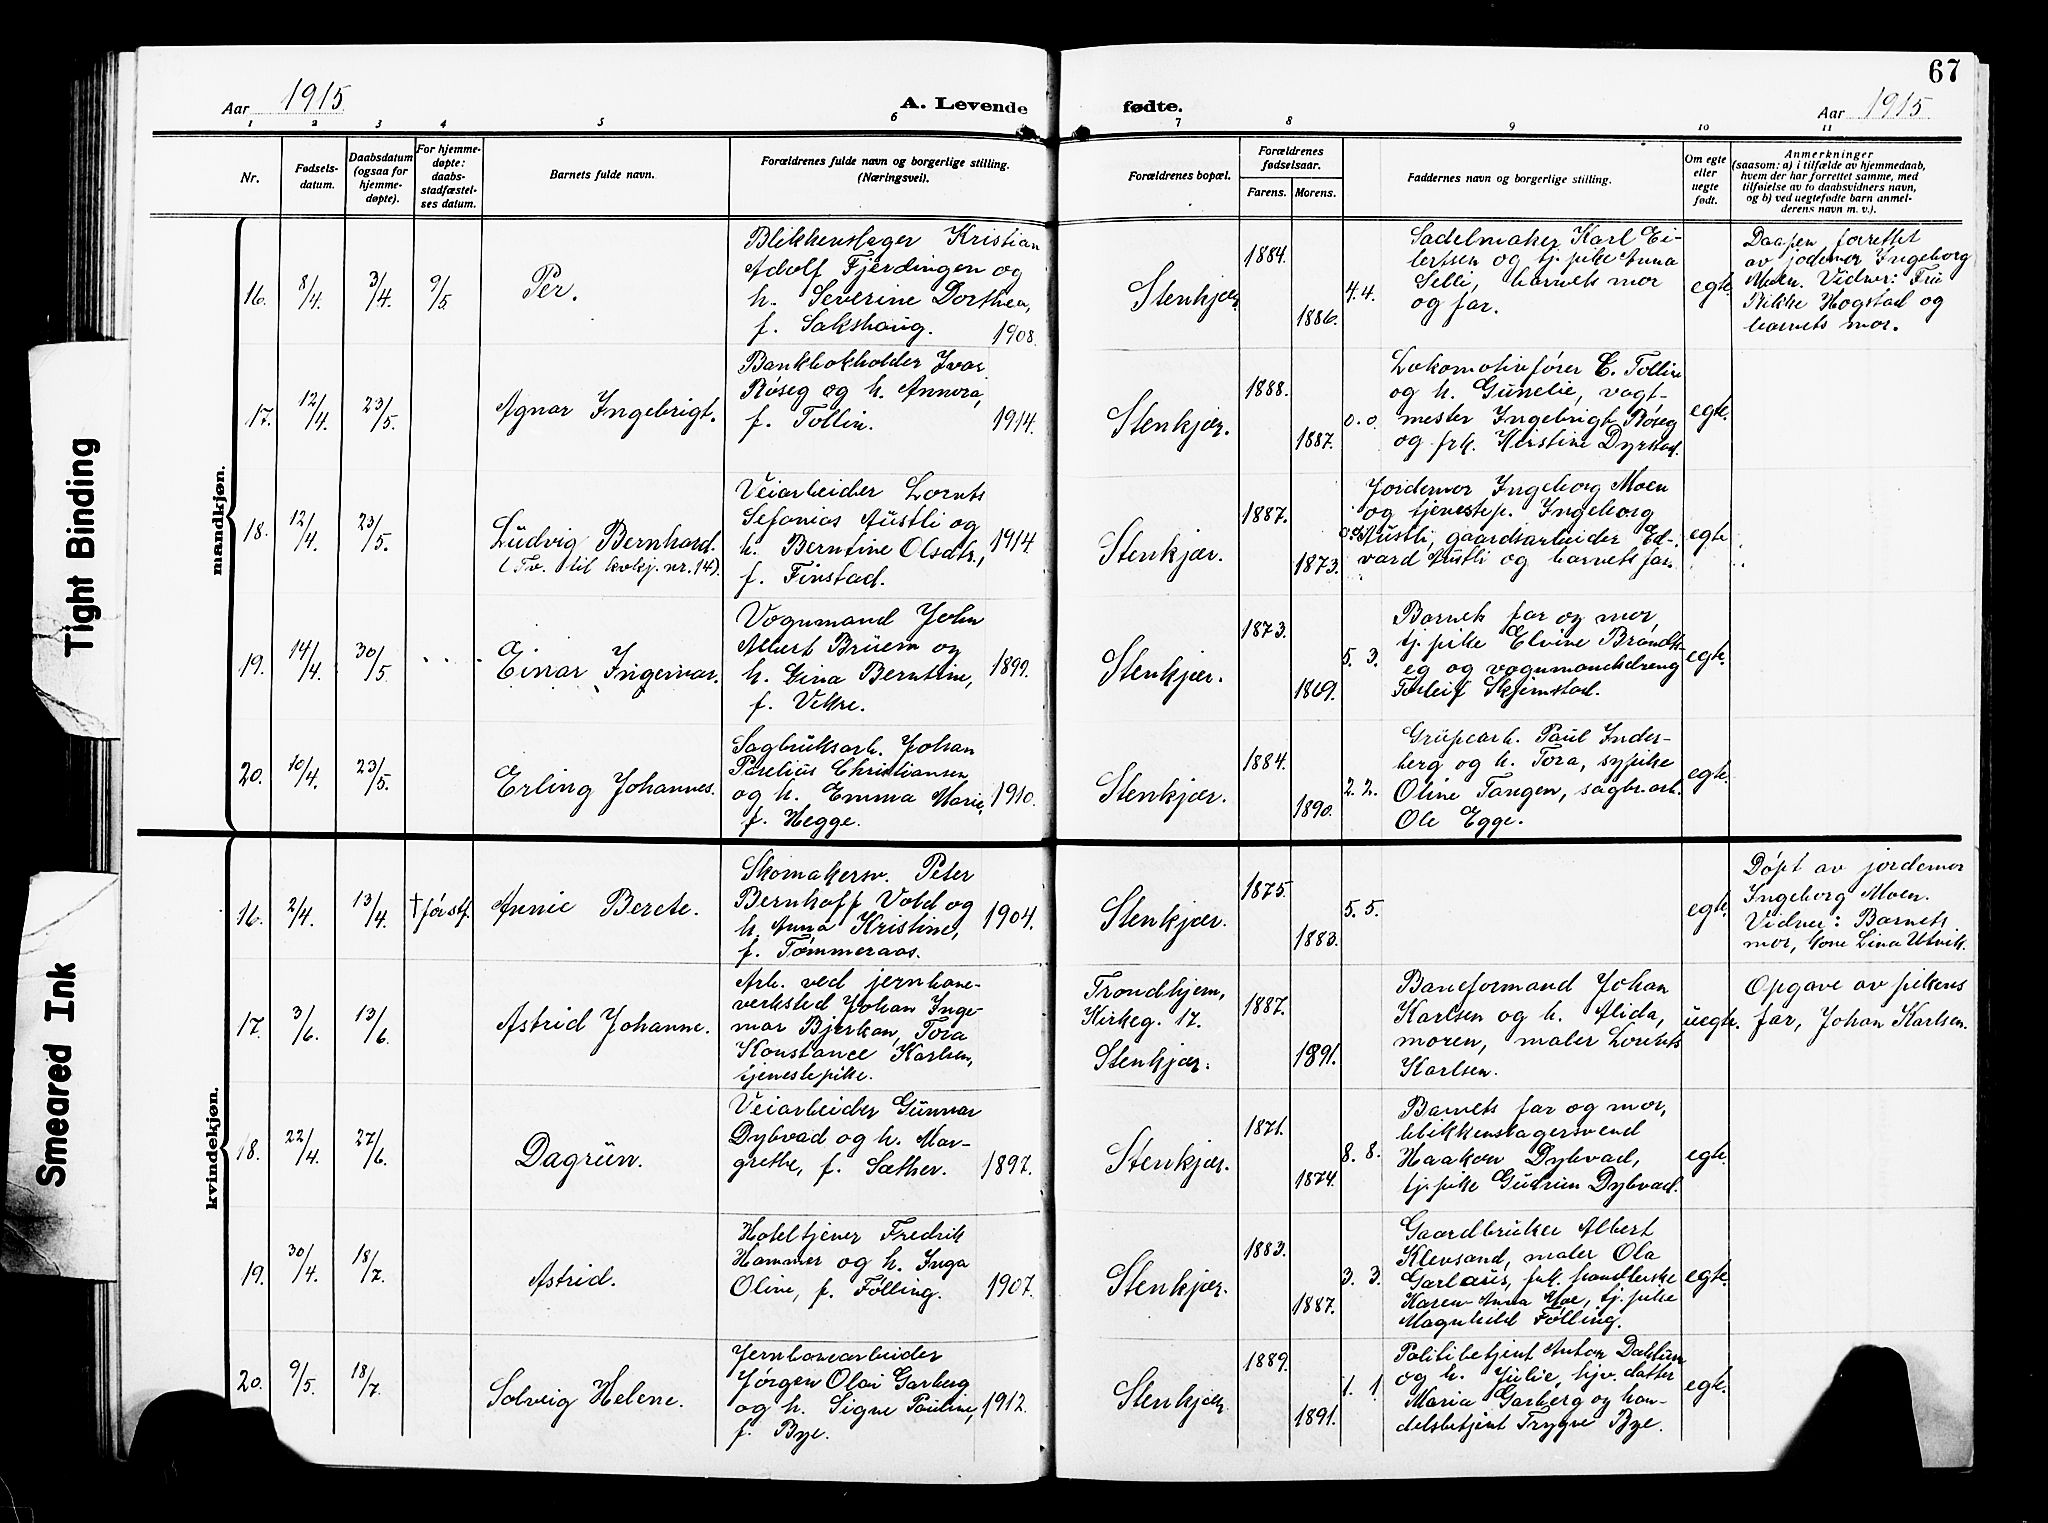 67
Aar 1915.
A. Levende
fødte.
Aar 1915.
1 2 3 4 5 6 7 8 9 10 11
Nr.
Fødsels-
datum.
Daabsdatum
(ogsaa for
hjemme-
døpte).
For hjemme-
døpte:
daabs-
stadfæstel-
ses datum.
Barnets fulde navn.
Forældrenes fulde navn og borgerlige stilling.
(Næringsvei).
Forældrenes bopæl.
Forældrenes
fødselsaar.
Farens. Morens.
Faddernes navn og borgerlige stilling.
Om egte
eller
uegte
født.
Anmerkninger
(saasom: a) i tilfælde av hjemmedaab,
hvem der har forrettet samme, med
tilføielse av to daabsvidners navn,
og b) ved uegtefødte barn anmel-
derens navn m. v.).
mandkjøn.
16. 8/4. 3/4. 9/5 Per.
Blikkenslager Kristian
Adolf Fjerdingen og
h. Severine Dorthea,
f. Sakshaug. 1908.
Stenkjær.
1884.
1886.
4.4.
Sadelmaker Karl Ei-
lertsen og tj.pike Anna
Selli, barnets mor
og far.
egte.
Daapen forrettet
av jodemor Ingeborg
Moen. Vidner: Fru
Rikke Hogstad og
barnets mor.
17. 12/4. 23/5. Agnar Ingebrigt.
Bankbokholder Ivar
Røseg og h. Annora,
f. Tollin. 1914.
Stenkjær.
1888.
1887.
0.0.
Lokomotivfører E. Tollin
og h. Gunelie, vagt-
mester Ingebrigt Røseg
og frk. Kristine Dyrstad.
egte.
18. 12/4. 23/5. Ludvig Bernhard.
(Tv. til kvkj. nr. 14).
Veiarbeider Lornts
Sefanias Austli og
h. Berntine Olsdtr., 1914
f. Finstad.
Stenkjær.
1887.
1873.
Jordemor Ingeborg Moen
og tjenestep. Ingeborg
Austli, gaardsarbeider Ed-
vard Austli og barnets far.
egte
19. 14/4. 30/5 Einar Ingemar.
Vognmand John
Albert Bruem og
h. Gina Berntine, 1899.
f. Vikre.
Stenkjær.
1873.
1869.
5. 3.
Barnets far og mor,
tj.pike Elvine Brandts-
eg og vognmandsdreng
Torleif Skjemstad.
egte.
20. 10/4. 23/5. Erling Johannes.
Sagbruksarb. Johan
Parelius Christiansen
og h. Emma Marie, 1910.
f. Hegge.
Stenkjær.
1884.
1890.
2. 2.
Grubearb. Paul Inder-
berg og h. Tora, sypike
Oline Tangen, sagbr.arb.
Ole Egge.
egte.
kvindekjøn.
16. 2/4. 13/4. † før stf. Annie Berete.
Skomakersv. Peter
Bernhoff Vold og
h. Anna Kristine, 1904.
f. Tømmeraas.
Stenkjær.
1875.
1883.
5. 5.
egte.
Døpt av jordemor
Ingeborg Moen.
Vidner: Barnets
mor, kone Lina Utvik.
17. 3/6. 13/6. Astrid Johanne.
Arb. ved jernbane-
verksted Johan Inge-
mar Bjerkan, Tora
Konstance Karlsen,
tjenestepike.
Trondhjem,
Kirkeg. 17.
Stenkjær.
1887.
1891.
Baneformand Johan
Karlsen og h. Alida,
moren, maler Lorents
Karlsen.
uegte.
Opgave av pikens
far, Johan Karlsen.
18. 22/4. 27/6. Dagrun.
Veiarbeider Gunnar
Dybvad og h. Mar-
grethe, f. Sæther. 1897.
Stenkjær.
1871.
1874.
8. 8.
Barnets far og mor,
blikkenslagersvend
Haakon Dybvad,
tj.pike Gudrun Dybvad.
egte.
19. 30/4. 18/7. Astrid.
Hoteltjener Fredrik
Hammer og h. Inga
Oline, f. Følling. 1907.
Stenkjær.
1883.
1887.
3. 3.
Gaardbruker Albert
Klevsand, maler Ola
Garlaus, frk. handlerske
Karen Anna Moe, tj.pike
Magnhild Følling.
egte.
20. 9/5. 18/7. Solveig Helene.
Jernbanearbeider
Jørgen Olai Garberg
og h. Signe Pauline, 1912.
f. Bye.
Stenkjær.
1889.
1891.
1. 1.
Politibetjent Anton Dahlum
og h. Julie, hjv. datter
Maria Garberg og han-
delsbetjent Trygve Bye.
egte.
Tight Binding
Smeared Ink